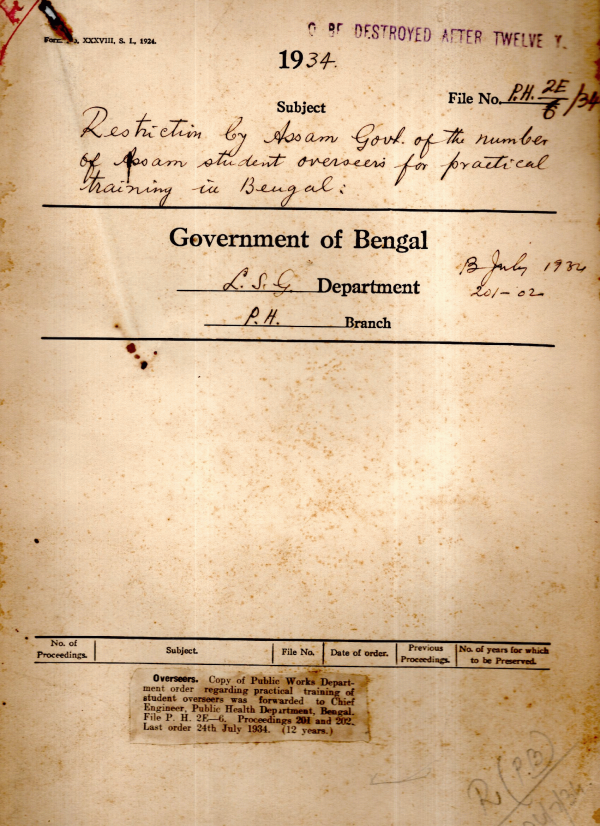 Form No. XXXVIII, S. I., 1924.
O BE DESTROYED AFTER TWELVE Y.
1934.
File No. P.H. 2E/6/34
Subject
Restriction by Assam Govt. of the number
of Assam student overseers for practical
training in Bengal:
Government of Bengal
L. S. G. Department
P.H. Branch
B July 1934
201-02
No. of Proceedings. Subject. File No. Date of order. Previous Proceedings. No. of years for which to be Preserved.
Overseers. Copy of Public Works Depart-
ment order regarding practical training of
student overseers was forwarded to Chief
Engineer, Public Health Department, Bengal.
File P. H. 2E—6. Proceedings 201 and 202.
Last order 24th July 1934. (12 years.)
R (P.B)